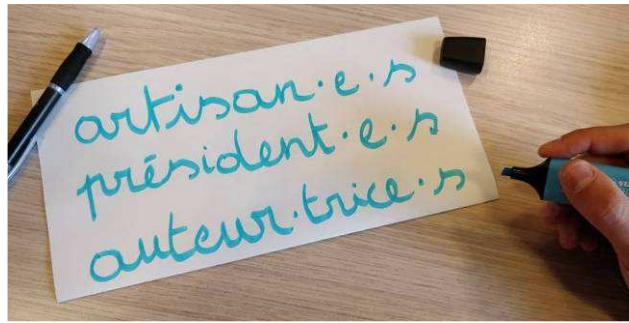 artisan·e·s
président·e·s
auteur·trice·s